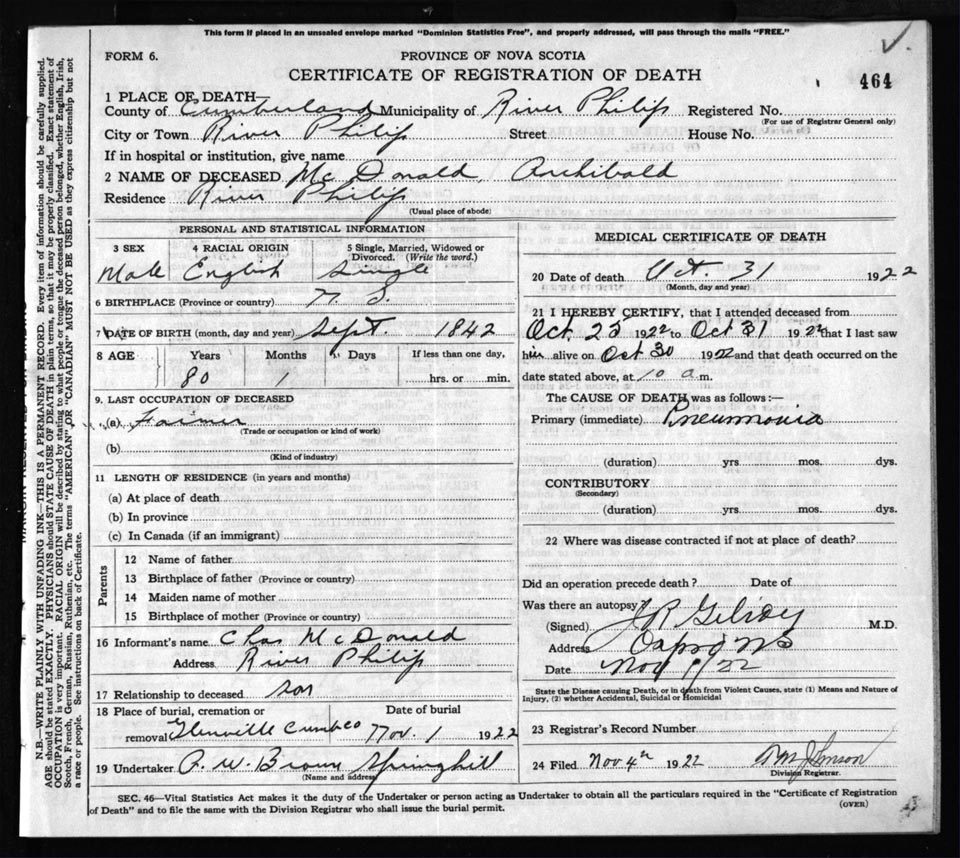 This form if placed in an unsealed envelope marked "Dominion Statistics Free", and properly addressed, will pass through the mails "FREE."
FORM 6.
PROVINCE OF NOVA SCOTIA
CERTIFICATE OF REGISTRATION OF DEATH
464
1 PLACE OF DEATH—
County of Cumberland Municipality of River Philip Registered No.
(For use of Registrar General only)
City or Town River Philip Street House No.
If in hospital or institution, give name
2 NAME OF DECEASED McDonald, Archibald
Residence River Philip
(Usual place of abode)
PERSONAL AND STATISTICAL INFORMATION
3 SEX 4 RACIAL ORIGIN 5 Single, Married, Widowed or Divorced. (Write the word.)
Male English Single
6 BIRTHPLACE (Province or country) N. S.
7 DATE OF BIRTH (month, day and year) Sept. 1842
8 AGE Years Months Days If less than one day,
80 1 hrs. or min.
9. LAST OCCUPATION OF DECEASED
(a) Farmer
(Trade or occupation or kind of work)
(b)
(Kind of industry)
11 LENGTH OF RESIDENCE (in years and months)
(a) At place of death
(b) In province
(c) In Canada (if an immigrant)
Parents
12 Name of father
13 Birthplace of father (Province or country)
14 Maiden name of mother
15 Birthplace of mother (Province or country)
16 Informant's name Chas McDonald
Address River Philip
17 Relationship to deceased son
18 Place of burial, cremation or Date of burial
removal Glenville Cumb Co Nov. 1 1922
19 Undertaker P. W. Brown Springhill
(Name and address)
MEDICAL CERTIFICATE OF DEATH
20 Date of death Oct. 31 1922
(Month, day and year)
21 I HEREBY CERTIFY, that I attended deceased from
Oct. 23 1922 to Oct 31 1922 that I last saw
him alive on Oct 30 1922 and that death occurred on the
date stated above, at 10 a.m.
The CAUSE OF DEATH was as follows:—
Primary (immediate) Pneumonia
(duration) yrs. mos. dys.
CONTRIBUTORY
(Secondary)
(duration) yrs. mos. dys.
22 Where was disease contracted if not at place of death?
Did an operation precede death? Date of
Was there an autopsy?
(Signed) Gilroy M.D.
Address Oxford NS
Date Nov 1/22
State the Disease causing Death, or in death from Violent Causes, state (1) Means and Nature of
Injury, (2) whether Accidental, Suicidal or Homicidal
23 Registrar's Record Number
24 Filed Nov 4th 1922 Johnson
Division Registrar.
SEC. 46—Vital Statistics Act makes it the duty of the Undertaker or person acting as Undertaker to obtain all the particulars required in the "Certificate of Registration
of Death" and to file the same with the Division Registrar who shall issue the burial permit. (OVER)
N.B.—WRITE PLAINLY WITH UNFADING INK—THIS IS A PERMANENT RECORD. Every item of information should be carefully supplied.
AGE should be stated EXACTLY. PHYSICIANS should STATE CAUSE OF DEATH in plain terms, so that it may be properly classified. Exact statement of
OCCUPATION is very important. RACIAL ORIGIN will be described by stating to what people or tongue the deceased person belonged, whether English, Irish,
Scotch, French, German, Russian, Ruthenian, etc. The terms "AMERICAN" OR "CANADIAN" MUST NOT BE USED as they express citizenship but not
a race or people. See instructions on back of Certificate.